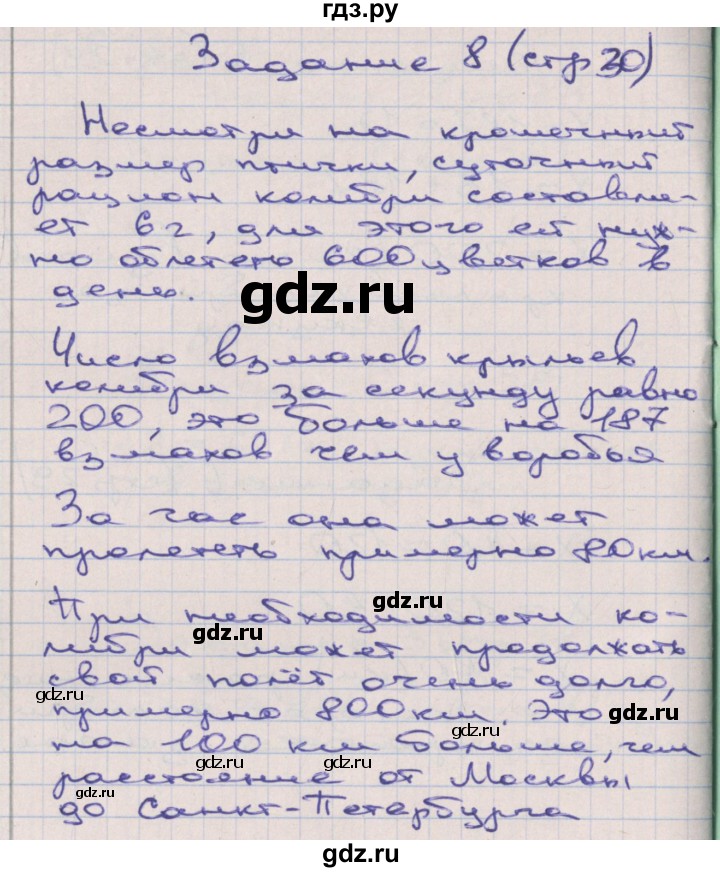 гдз.ру
Задание 8 (стр 30)
Несмотря на крошечный
размер птички, суточный
рацион колибри составля-
ет 6 г, для этого ей нуж-
но облететь 600 цветков в
день.
gdz.ru
Число взмахов крыльев
колибри за секунду равно
200, это больше на 187
взмахов чем у воробья
За час она может
пролететь примерно 80 км.
gdz.ru
При необходимости ко-
gdz.ru
либри может продолжать
свой полёт очень долго,
gdz.ru
примерно 800 км. Это
gdz.ru
на 100 км больше, чем
gdz.ru
gdz.ru
расстояние от Москвы
до Санкт-Петербурга
gdz.ru